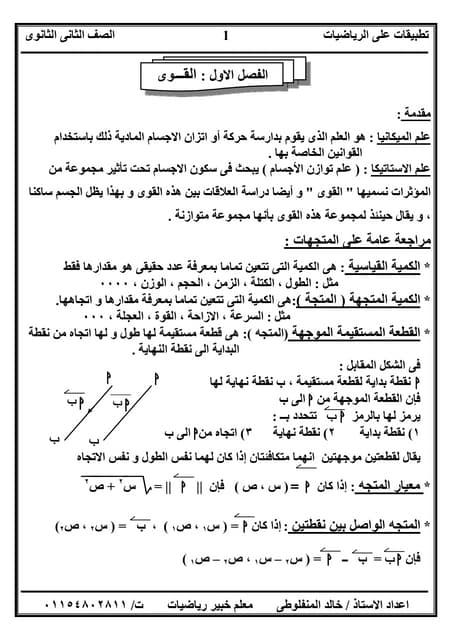 تطبيقات على الرياضيات 1 الصف الثانى الثانوى
الفصل الاول : القـــوى
مقدمة :
علم الميكانيا : هو العلم الذى يقوم بدارسة حركة أو اتزان الاجسام المادية ذلك باستخدام
القوانين الخاصة بها .
علم الاستاتيكا : ( علم توازن الأجسام ) يبحث فى سكون الاجسام تحت تأثير مجموعة من
المؤثرات نسميها " القوى " و أيضا دراسة العلاقات بين هذه القوى و بهذا يظل الجسم ساكنا
، و يقال حينئذ لمجموعة هذه القوى بأنها مجموعة متوازنة .
مراجعة عامة على المتجهات :
* الكمية القياسية : هى الكمية التى تتعين تماما بمعرفة عدد حقيقى هو مقدارها فقط
مثل : الطول ، الكتلة ، الزمن ، الحجم ، الوزن ، ٠٠٠٠
* الكمية المتجهة ( المتجة ) :هى الكمية التى تتعين تماما بمعرفة مقدارها و اتجاهها.
مثل : السرعة ، الازاحة ، القوة ، العجلة ، ٠٠٠
* القطعة المستقيمة الموجهة (المتجه ): هى قطعة مستقيمة لها طول و لها اتجاه من نقطة
البداية الى نقطة النهاية .
فى الشكل المقابل :
أ نقطة بداية لقطعة مستقيمة ، ب نقطة نهاية لها
فإن القطعة الموجهة من أ الى ب
يرمز لها بالرمز أب تتحدد بــ :
١) نقطة بداية ٢) نقطة نهاية ٣) اتجاه من أ الى ب
أ أ
أب أب
ب ب
يقال لقطعتين موجهتين انهما متكافئتان إذا كان لهما نفس الطول و نفس الاتجاه
* معيار المتجه : إذا كان أ = ( س ، ص ) فإن || أ || = √س٢ + ص٢
* المتجه الواصل بين نقطتين : إذا كان أ = ( س١ ، ص١ ) ، ب = ( س٢ ، ص٢)
فإن أب = ب – أ = ( س٢ – س١ ، ص٢ – ص١ )
اعداد الاستاذ / خالد المنفلوطى معلم خبير رياضيات ت/ ٠١١٥٤٨٠٢٨١١